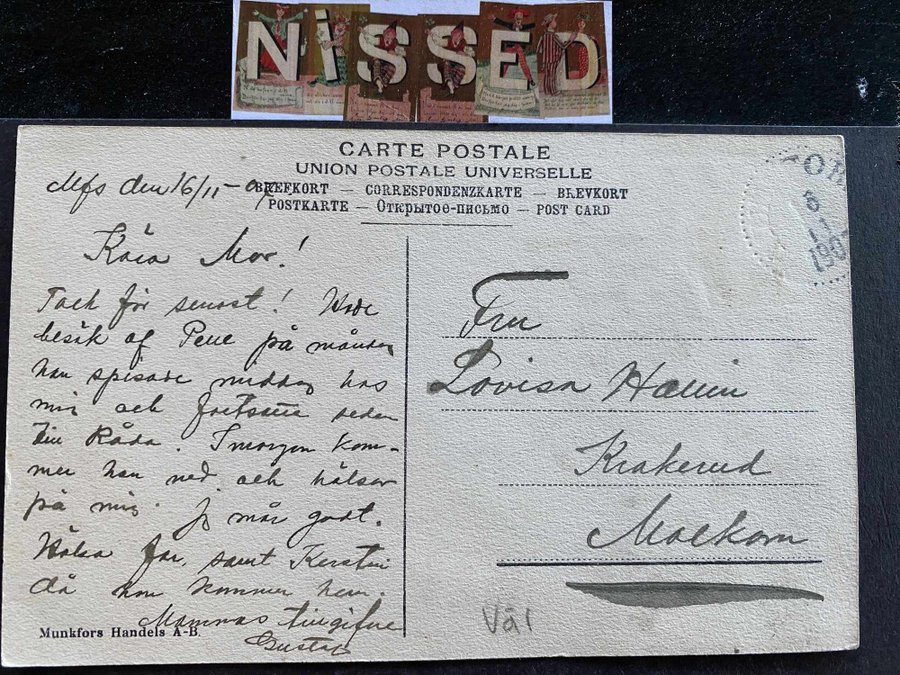 NiSSED
CARTE POSTALE
UNION POSTALE UNIVERSELLE
BREFKORT — CORRESPONDENZKARTE — BREVKORT
POSTKARTE — Открытое-письмо — POST CARD
Mfs den 16/11-07
Kära Mor!
Tack för senast! Hade
besök af Pelle på måndag
han spisade middag hos
mig och fortsatte sedan
till Råda. I morgon kom-
mer han ned och hälsar
på mig. Jg mår godt.
Hälsa far, samt Kerstin
då hon kommer hem.
Mammas tillgifne
Gustaf
Munkfors Handels A-B.
Fru
Lovisa
Krakerud
Molkom
Väl
1907